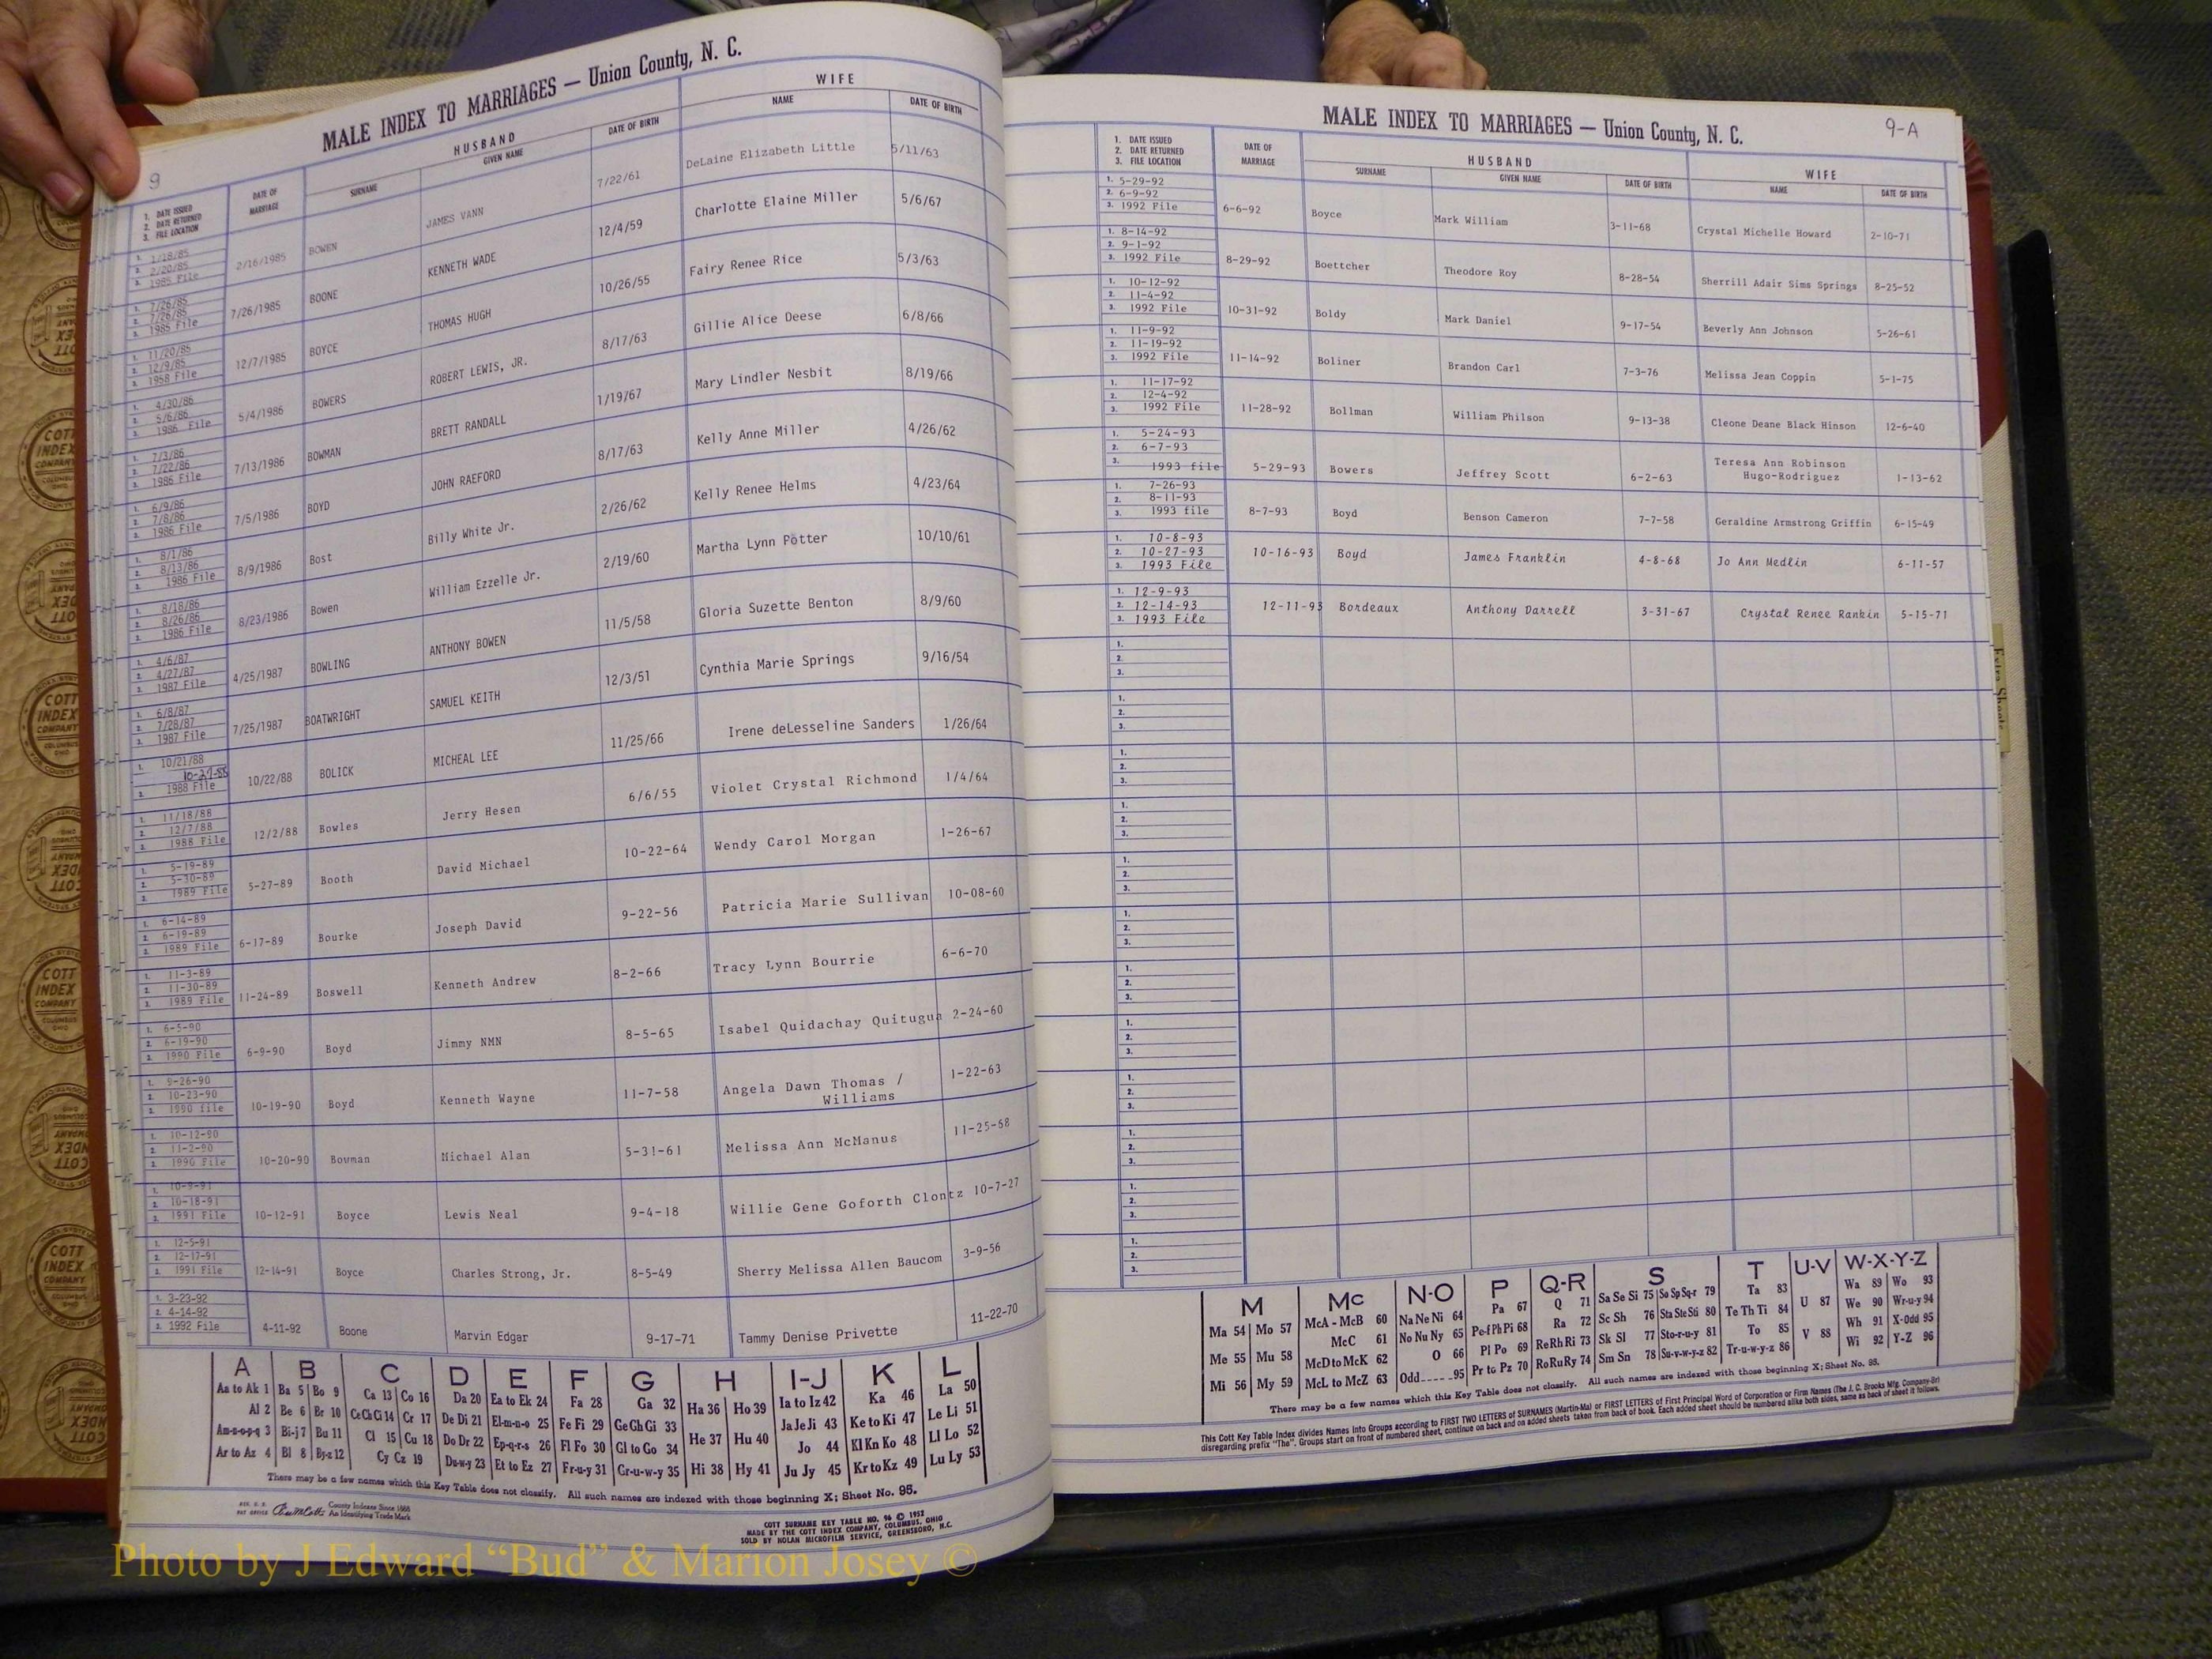 9
MALE INDEX TO MARRIAGES — Union County, N. C.
HUSBAND WIFE
1. DATE ISSUED 2. DATE RETURNED 3. FILE LOCATION DATE OF MARRIAGE SURNAME GIVEN NAME DATE OF BIRTH NAME DATE OF BIRTH
1. 1/18/85 2. 2/20/85 3. 1985 File 2/16/1985 BOWEN JAMES VANN 7/22/61 DeLaine Elizabeth Little 5/11/63
1. 7/26/85 2. 7/26/85 3. 1985 File 7/26/1985 BOONE KENNETH WADE 12/4/59 Charlotte Elaine Miller 5/6/67
1. 11/20/85 2. 12/9/85 3. 1958 File 12/7/1985 BOYCE THOMAS HUGH 10/26/55 Fairy Renee Rice 5/3/63
1. 4/30/86 2. 5/6/86 3. 1986 File 5/4/1986 BOWERS ROBERT LEWIS, JR. 8/17/63 Gillie Alice Deese 6/8/66
1. 7/3/86 2. 7/22/86 3. 1986 File 7/13/1986 BOWMAN BRETT RANDALL 1/19/67 Mary Lindler Nesbit 8/19/66
1. 6/9/86 2. 7/8/86 3. 1986 File 7/5/1986 BOYD JOHN RAEFORD 8/17/63 Kelly Anne Miller 4/26/62
1. 8/1/86 2. 8/13/86 3. 1986 File 8/9/1986 Bost Billy White Jr. 2/26/62 Kelly Renee Helms 4/23/64
1. 8/18/86 2. 8/26/86 3. 1986 File 8/23/1986 Bowen William Ezzelle Jr. 2/19/60 Martha Lynn Potter 10/10/61
1. 4/6/87 2. 4/27/87 3. 1987 File 4/25/1987 BOWLING ANTHONY BOWEN 11/5/58 Gloria Suzette Benton 8/9/60
1. 6/8/87 2. 7/28/87 3. 1987 File 7/25/1987 BOATWRIGHT SAMUEL KEITH 12/3/51 Cynthia Marie Springs 9/16/54
1. 10/21/88 10-27-88 1988 File 10/22/88 BOLICK MICHEAL LEE 11/25/66 Irene deLesseline Sanders 1/26/64
1. 11/18/88 2. 12/7/88 3. 1988 File 12/2/88 Bowles Jerry Hesen 6/6/55 Violet Crystal Richmond 1/4/64
1. 5-19-89 2. 5-30-89 3. 1989 File 5-27-89 Booth David Michael 10-22-64 Wendy Carol Morgan 1-26-67
1. 6-14-89 2. 6-19-89 3. 1989 File 6-17-89 Bourke Joseph David 9-22-56 Patricia Marie Sullivan 10-08-60
1. 11-3-89 2. 11-30-89 3. 1989 File 11-24-89 Boswell Kenneth Andrew 8-2-66 Tracy Lynn Bourrie 6-6-70
1. 6-5-90 2. 6-19-90 3. 1990 File 6-9-90 Boyd Jimmy NMN 8-5-65 Isabel Quidachay Quitugua 2-24-60
1. 9-26-90 2. 10-23-90 3. 1990 file 10-19-90 Boyd Kenneth Wayne 11-7-58 Angela Dawn Thomas / Williams 1-22-63
1. 10-12-90 2. 11-2-90 3. 1990 File 10-20-90 Bowman Michael Alan 5-31-61 Melissa Ann McManus 11-25-68
1. 10-9-91 2. 10-18-91 3. 1991 File 10-12-91 Boyce Lewis Neal 9-4-18 Willie Gene Goforth Clontz 10-7-27
1. 12-5-91 2. 12-17-91 3. 1991 File 12-14-91 Boyce Charles Strong, Jr. 8-5-49 Sherry Melissa Allen Baucom 3-9-56
1. 3-23-92 2. 4-14-92 3. 1992 File 4-11-92 Boone Marvin Edgar 9-17-71 Tammy Denise Privette 11-22-70
A B C D E F G H I-J K L
Aa to Ak 1 Ba 5 Bo 9 Ca 13 Co 16 Da 20 Ea to Ek 24 Fa 28 Ga 32 Ha 36 Ho 39 Ia to Iz 42 Ka 46 La 50
Al 2 Be 6 Br 10 Ce Ch Ci 14 Cr 17 De Di 21 El-m-n-o 25 Fe Fi 29 Ge Gh Gi 33 He 37 Hu 40 Ja Je Ji 43 Ke to Ki 47 Le Li 51
Am-n-o-p-q 3 Bi-j 7 Bu 11 Cl 15 Cu 18 Do Dr 22 Ep-q-r-s 26 Fl Fo 30 Gl to Go 34 Hi 38 Hy 41 Jo 44 Kl Kn Ko 48 Ll Lo 52
Ar to Az 4 Bl 8 By-z 12 Cy Cz 19 Du-w-y 23 Et to Ez 27 Fr-u-y 31 Gr-u-w-y 35 Ju Jy 45 Kr to Kz 49 Lu Ly 53
There may be a few names which this Key Table does not classify. All such names are indexed with those beginning X; Sheet No. 95.
REG. U. S. PAT OFFICE County Indexes Since 1888 An Identifying Trade Mark
COTT SURNAME KEY TABLE NO. 96 © 1952
MADE BY THE COTT INDEX COMPANY, COLUMBUS, OHIO
SOLD BY NOLAN MICROFILM SERVICE, GREENSBORO, N.C.
Photo by J Edward “Bud” & Marion Josey ©
MALE INDEX TO MARRIAGES — Union County, N. C.
9-A
HUSBAND WIFE
1. DATE ISSUED 2. DATE RETURNED 3. FILE LOCATION DATE OF MARRIAGE SURNAME GIVEN NAME DATE OF BIRTH NAME DATE OF BIRTH
1. 5-29-92 2. 6-9-92 3. 1992 File 6-6-92 Boyce Mark William 3-11-68 Crystal Michelle Howard 2-10-71
1. 8-14-92 2. 9-1-92 3. 1992 File 8-29-92 Boettcher Theodore Roy 8-28-54 Sherrill Adair Sims Springs 8-25-52
1. 10-12-92 2. 11-4-92 3. 1992 File 10-31-92 Boldy Mark Daniel 9-17-54 Beverly Ann Johnson 5-26-61
1. 11-9-92 2. 11-19-92 3. 1992 File 11-14-92 Boliner Brandon Carl 7-3-76 Melissa Jean Coppin 5-1-75
1. 11-17-92 2. 12-4-92 3. 1992 File 11-28-92 Bollman William Philson 9-13-38 Cleone Deane Black Hinson 12-6-40
1. 5-24-93 2. 6-7-93 3. 1993 file 5-29-93 Bowers Jeffrey Scott 6-2-63 Teresa Ann Robinson Hugo-Rodriguez 1-13-62
1. 7-26-93 2. 8-11-93 3. 1993 file 8-7-93 Boyd Benson Cameron 7-7-58 Geraldine Armstrong Griffin 6-15-49
1. 10-8-93 2. 10-27-93 3. 1993 File 10-16-93 Boyd James Franklin 4-8-68 Jo Ann Medlin 6-11-57
1. 12-9-93 2. 12-14-93 3. 1993 File 12-11-93 Bordeaux Anthony Darrell 3-31-67 Crystal Renee Rankin 5-15-71
1. 2. 3.
1. 2. 3.
1. 2. 3.
1. 2. 3.
1. 2. 3.
1. 2. 3.
1. 2. 3.
1. 2. 3.
1. 2. 3.
1. 2. 3.
1. 2. 3.
1. 2. 3.
M Mc N-O P Q-R S T U-V W-X-Y-Z
Ma 54 Mo 57 McA - McB 60 Na Ne Ni 64 Pa 67 Q 71 Sa Se Si 75 So Sp Sq-r 79 Ta 83 U 87 Wa 89 Wo 93
Me 55 Mu 58 McC 61 No Nu Ny 65 Pe-f Ph Pi 68 Ra 72 Sc Sh 76 Sta Ste Sti 80 Te Th Ti 84 V 88 We 90 Wr-u-y 94
Mi 56 My 59 McD to McK 62 O 66 Pl Po 69 Re Rh Ri 73 Sk Sl 77 Sto-r-u-y 81 To 85 Wh 91 X-Odd 95
McL to McZ 63 Odd 95 Pr to Pz 70 Ro Ru Ry 74 Sm Sn 78 Su-v-w-y-z 82 Tr-u-w-y-z 86 Wi 92 Y-Z 96
There may be a few names which this Key Table does not classify. All such names are indexed with those beginning X; Sheet No. 95.
This Cott Key Table Index divides Names Into Groups according to FIRST TWO LETTERS of SURNAMES (Martin-Ma) or FIRST LETTERS of First Principal Word of Corporation or Firm Names (The J. C. Brooks Mfg. Company-Br)
disregarding prefix "The". Groups start on front of numbered sheet, continue on back and on added sheets taken from back of book. Each added sheet should be numbered alike both sides, same as back of sheet it follows.
Extra Sheets
COTT INDEX COMPANY COLUMBUS OHIO